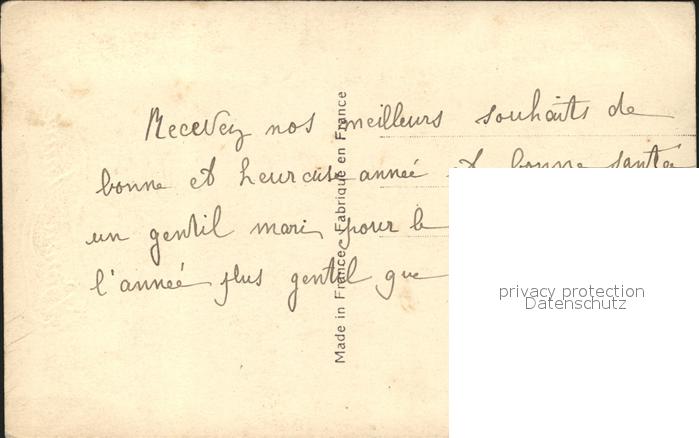 Recevez nos meilleurs souhaits de
bonne et heureuse année et bonne santé
un gentil mari pour la
l'année plus gentil que
Made in France - Fabrique en France
privacy protection
Datenschutz